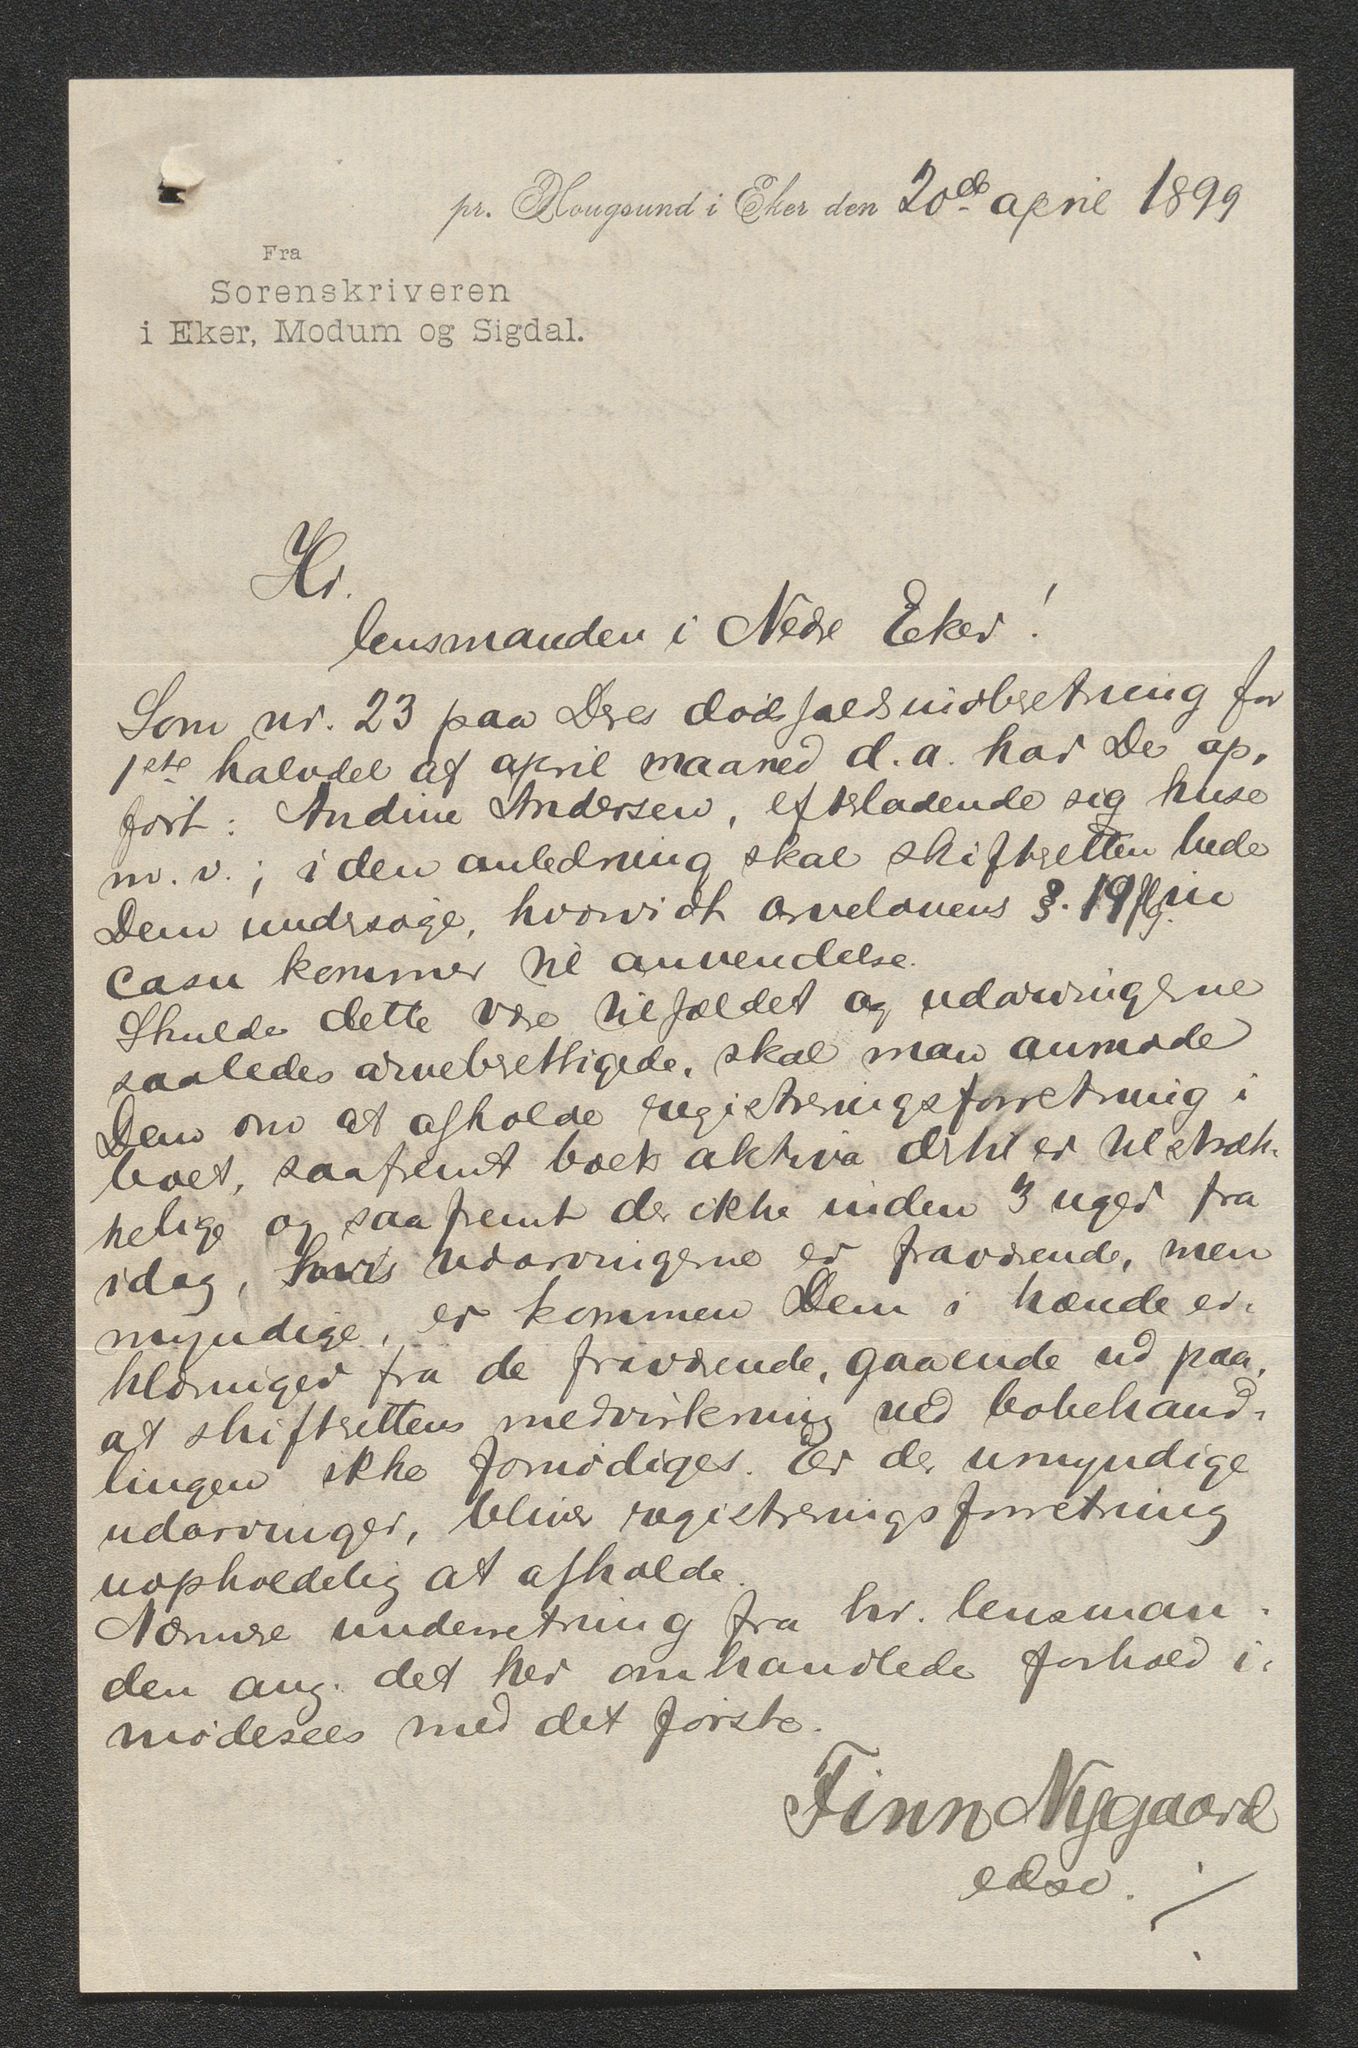 pr. Hougsund i Eker den 20de april 1899
Fra
Sorenskriveren
i Eker, Modum og Sigdal.
Hr.
lensmanden i Nedre Eker!
Som nr. 23 paa Deres dødsfaldsindberetning for
1ste halvdel af april maaned d.a. har De op-
ført: Andine Andersen, efterladende sig huse
m.v.; i den anledning skal skifteretten bede
Dem undersøge, hvorvidt arvelovens §. 19 flg. in
casu kommer til anvendelse.
Skulde dette være tilfældet og udarvingerne
saaledes arveberettigede, skal man anmode
Dem om at afholde registreringsforretning i
boet, saafremt boets aktiva dertil er tilstræk-
kelige og saafremt der ikke inden 3 uger fra
idag, hvis udarvingerne er fraværende, men
myndige, er kommen Dem i hænde er-
klæringer fra de fraværende, gaaende ud paa,
at skifterettens medvirkning ved bobehand-
lingen ikke fornødiges. Er der umyndige
udarvinger, bliver registreringsforretning
uopholdelig at afholde.
Nærmere underretning fra hr. lensman-
den ang. det her omhandlede forhold i-
mødesees med det første.
Finn Nygaard
edsv.